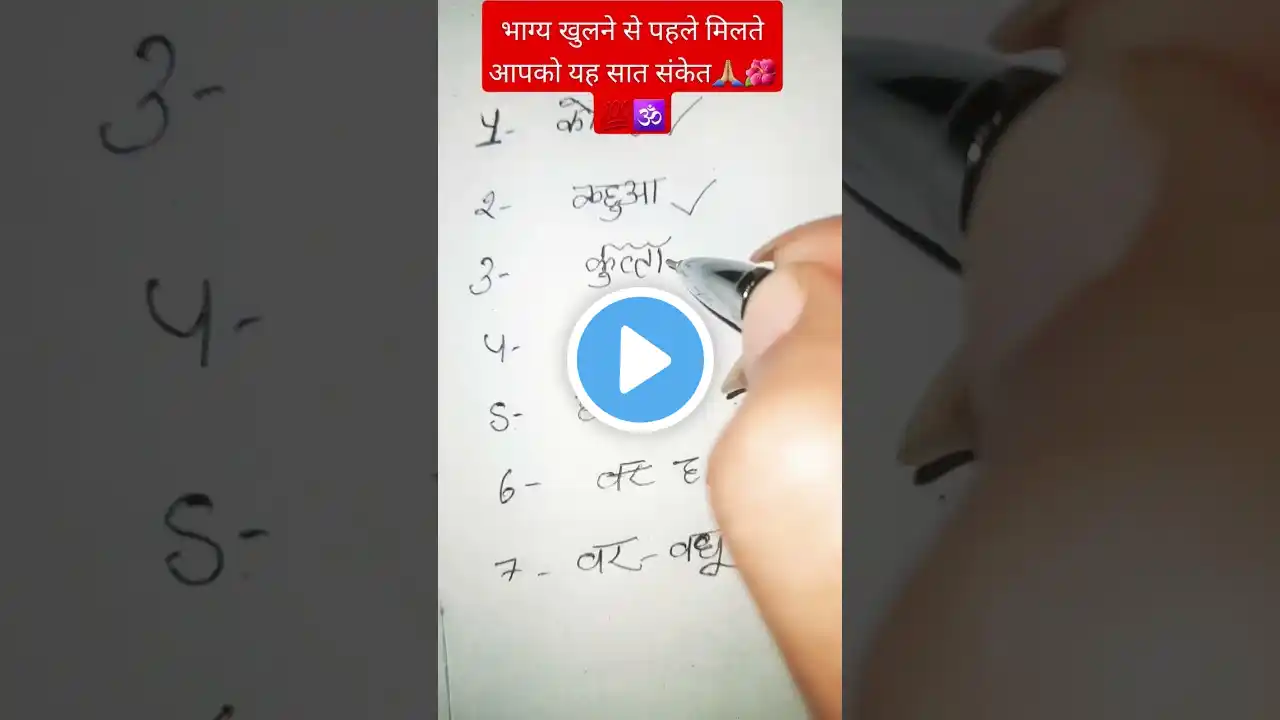 भाग्य खुलने से पहले मिलते
आपको यह सात संकेत🙏🏽🌺
💯🕉️
1-
2- कछुआ ✓
3- कुत्ता
4-
5-
6-
7- वर-वधू
3-
4-
5-